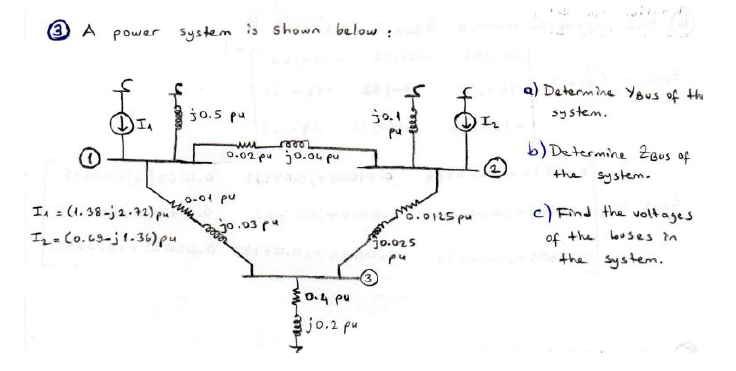 ③ A power system is shown below :
a) Determine YBUS of the system.
b) Determine ZBUS of the system.
c) Find the voltages of the buses in the system.
I1
j0.5 pu
j0.1 pu
I2
①
0.02 pu j0.04 pu
②
0.01 pu
j0.03 pu
0.0125 pu
j0.025 pu
I1 = (1.38-j2.72) pu
I2 = (0.69-j1.36) pu
③
0.4 pu
j0.2 pu